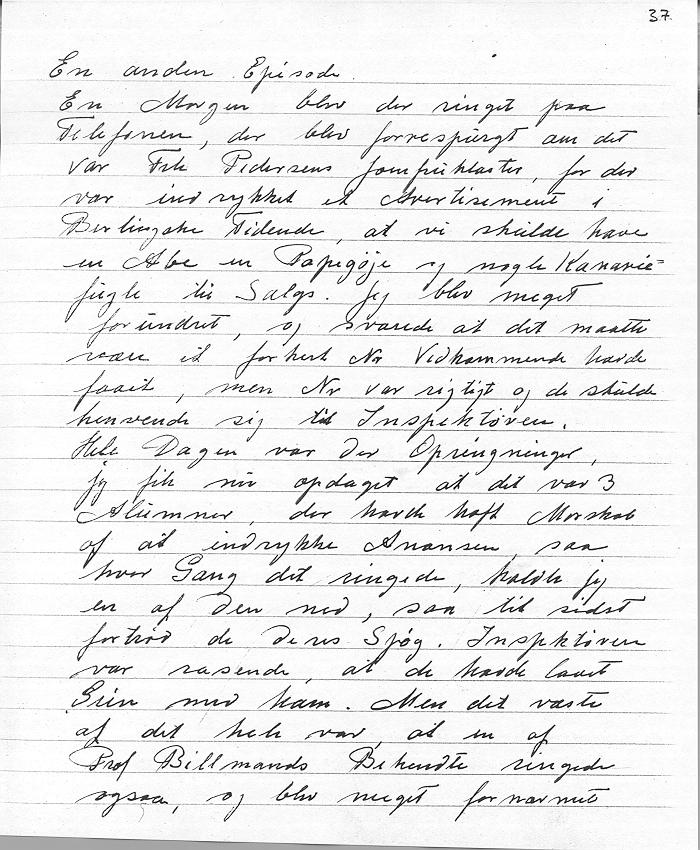 37.
En anden Episode.
En Morgen blev der ringet paa
Telefonen, der blev forrespurgt om det
var Frk Pedersens, for der
var indrykket et Avertisement i
Berlingske Tidende, at vi skulde have
en Abe en Papegøje og nogle Kanarie=
fugle til Salgs. Jeg blev meget
forundret, og svarede at det maatte
være et forkert Nr Vedkommende havde
faaet, men Nr var rigtigt og de skulde
henvende sig til Inspektøren.
Hele Dagen var der Opringninger,
jeg fik nu opdaget at det var 3
Alumner, der havde haft Morskab
af at indrykke Anonsen, saa
hver Gang det ringede, kaldte jeg
en af dem ned, saa til sidst
fortrød de deres Spøg. Inspektøren
var rasende, at de havde lavet
Grin med ham. Men det værste
af det hele var, at en af
Prof Billmands Bekendte ringede
ogsaa, og blev meget fornærmet